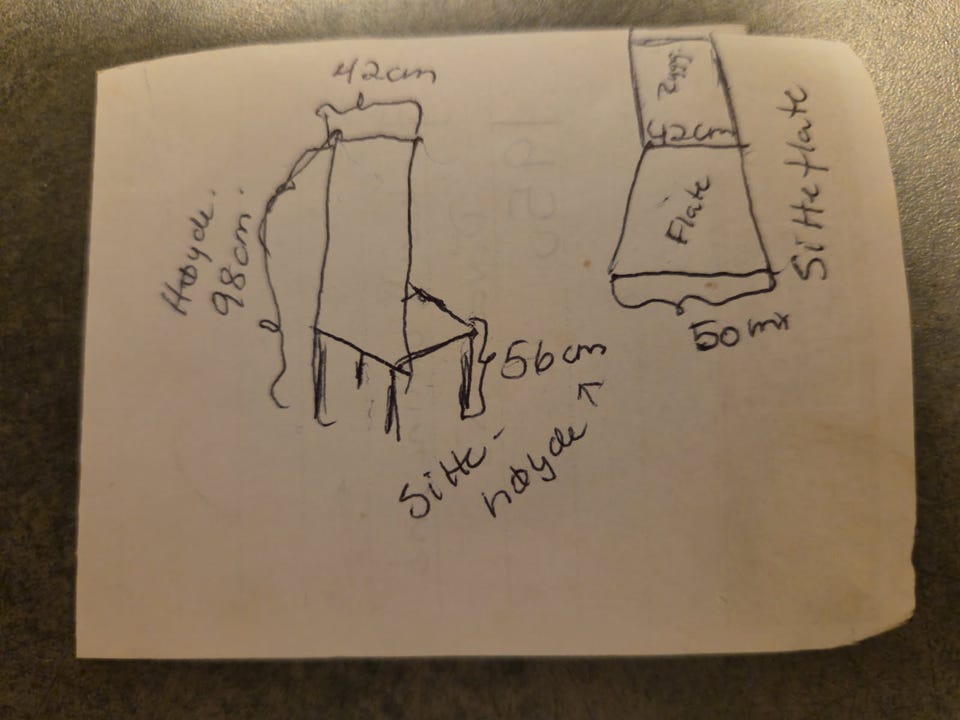 42cm
Høyde.
98cm.
56cm
Sitte-
høyde ↑
Rygg.
42cm
Flate
50
Sitteflate